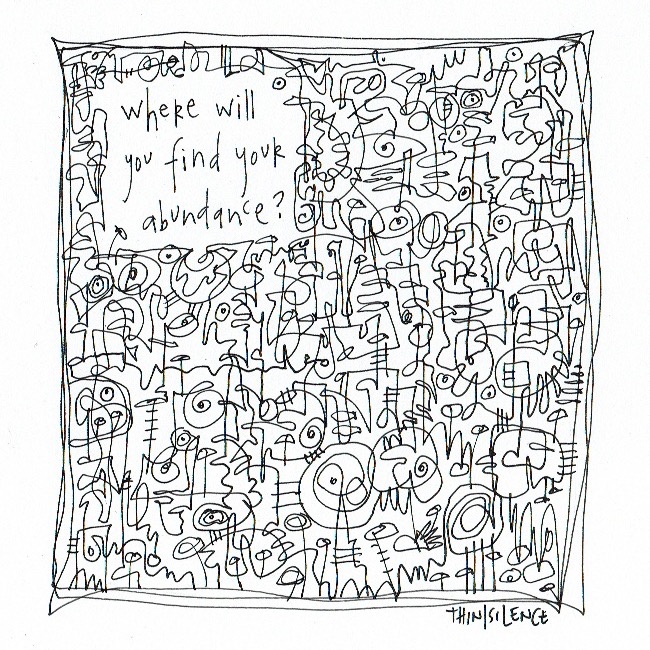 where will
you find your
abundance?
THIN|SILENCE